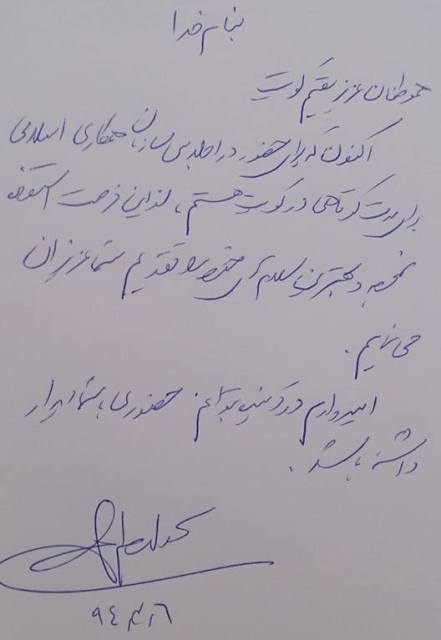 بنام خدا
هموطنان عزیز مقیم کویت
اکنون که برای حضور در اجلاس سازمان همکاری اسلامی
برای مدت کوتاهی در کویت هستم، از این فرصت استفاده
نموده و بهترین سلام های خود را تقدیم شما عزیزان
می نمایم.
امیدوارم در آینده بتوانم حضوری با شما دیدار
داشته باشم.